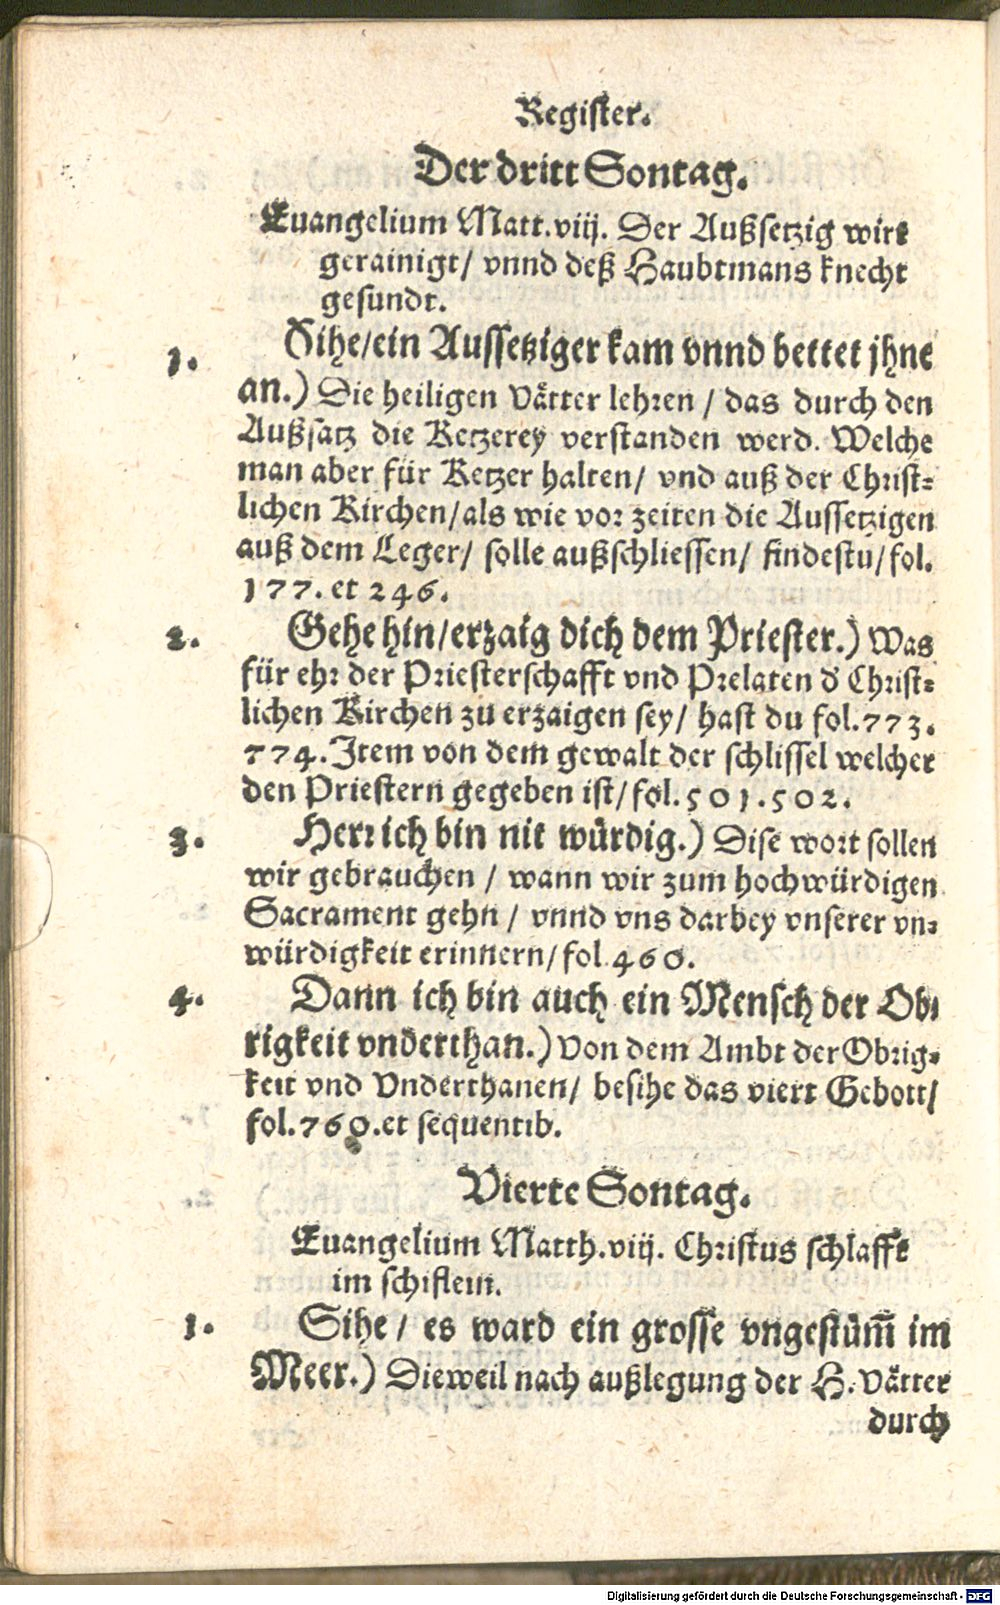 Register.
Der dritt Sontag.
Euangelium Matt.viij. Der Außsetzig wirt
gerainigt/ vnnd deß Haubtmans knecht
gesundt.
1. Sihe/ein Aussetziger kam vnnd bettet jhne
an.) Die heiligen Vätter lehren / das durch den
Außsatz die Ketzerey verstanden werd. Welche
man aber für Ketzer halten/ vnd auß der Christ-
lichen Kirchen/als wie vor zeiten die Aussetzigen
auß dem Leger/ solle außschliessen/ findestu/fol.
177. et 246.
2. Gehe hin/erzaig dich dem Priester.) Was
für ehr der Priesterschafft vnd Prelaten d' Christ-
lichen Kirchen zu erzaigen sey/ hast du fol.773.
774. Item von dem gewalt der schlissel welcher
den Priestern gegeben ist/fol.501.502.
3. Herr ich bin nit würdig.) Dise wort sollen
wir gebrauchen / wann wir zum hochwürdigen
Sacrament gehn / vnnd vns darbey vnserer vn-
würdigkeit erinnern/fol.460.
4. Dann ich bin auch ein Mensch der Ob-
rigkeit vnderthan.) Von dem Ambt der Obrig-
keit vnd Vnderthanen/ besihe das viert Gebott/
fol.760.et sequentib.
Vierte Sontag.
Euangelium Matth.viij. Christus schlafft
im schiflein.
1. Sihe / es ward ein grosse vngestüm̃ im
Meer.) Dieweil nach außlegung der H. Vätter
durch
Digitalisierung gefördert durch die Deutsche Forschungsgemeinschaft - DFG